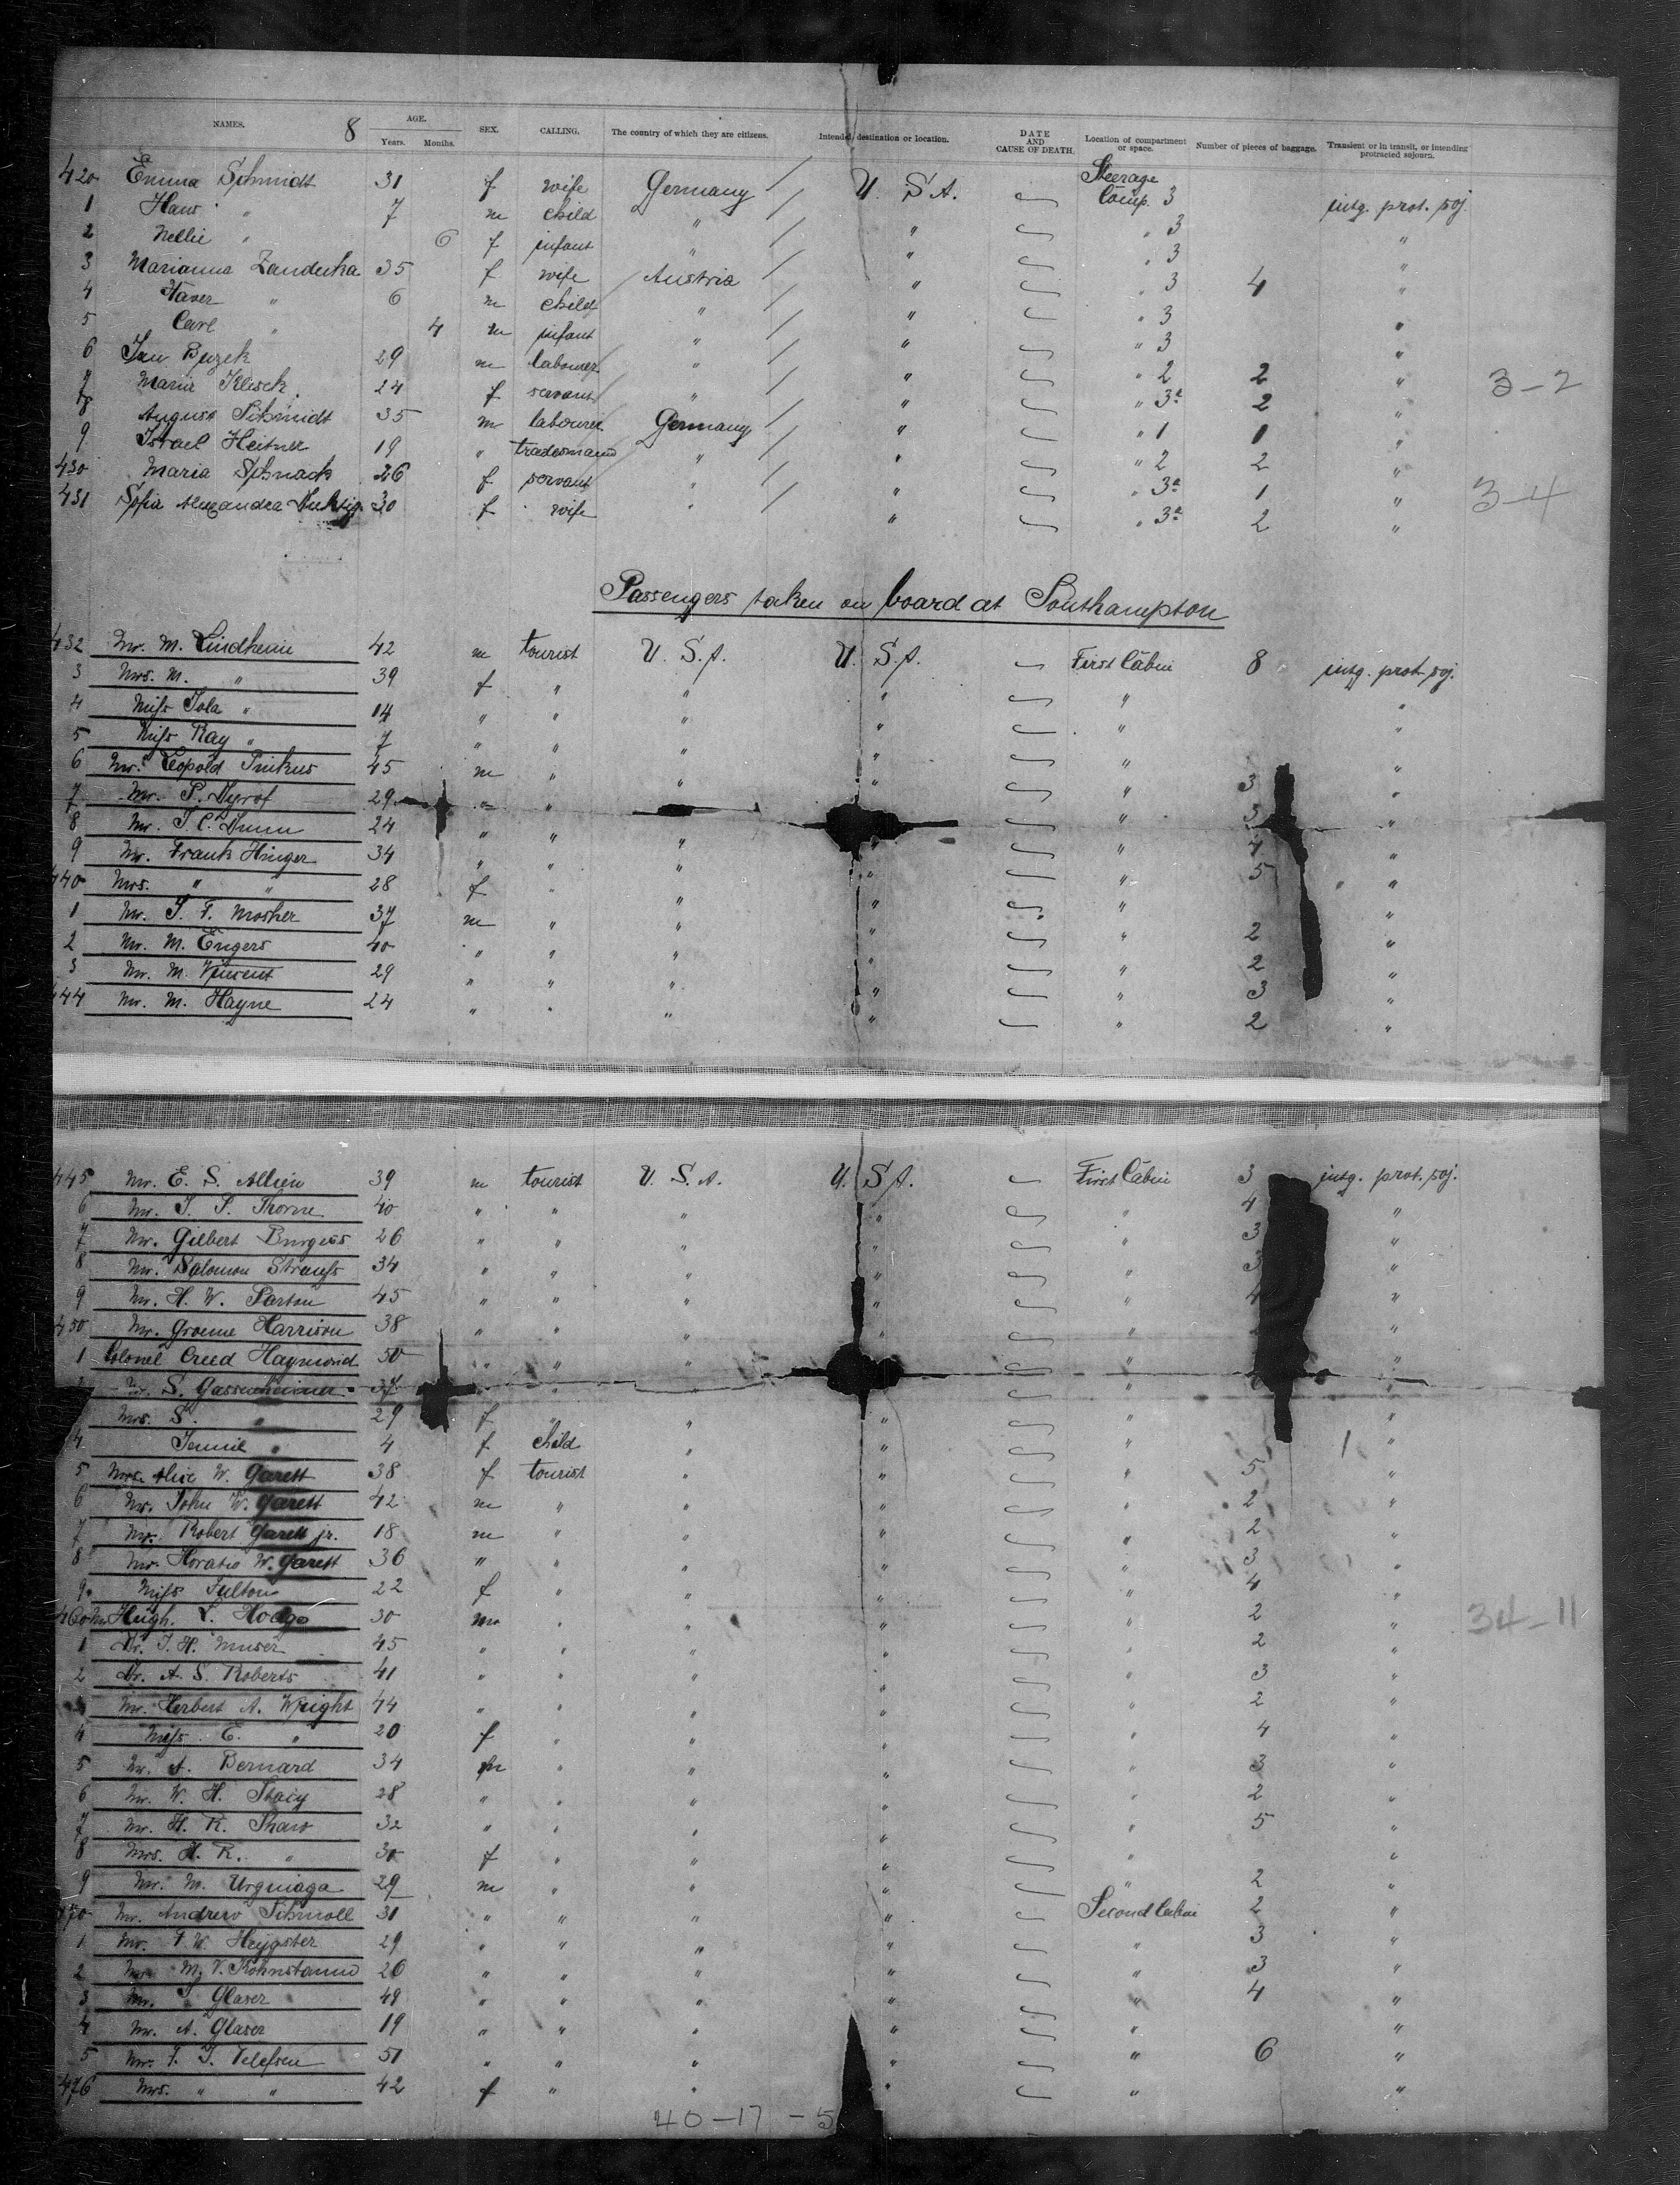 NAMES. 8 AGE. Years. Months. SEX. CALLING. The country of which they are citizens. Intended destination or location. DATE AND CAUSE OF DEATH. Location of compartment or space. Number of pieces of baggage. Transient or in transit, or intending protracted sojourn.
420 Emma Schmidt 31 f wife Germany / U. S A. Steerage Comp. 3 intg. prot. soj.
1 Hans " 7 m child " / " " 3 "
2 Nellie " 6 f infant " / " " 3 "
3 Marianna 35 f wife Austria / " " 3 4 "
4 " 6 m child " / " " 3 "
5 Carl " 4 m infant " / " " 3 "
6 Jan 29 m labourer " / " " 2 2 " 3-2
7 24 f servant " / " " 3a 2 "
8 August Schmidt 35 m labourer Germany / " " 1 1 "
9 Israel Heitner 19 " tradesmann " / " " 2 2 "
430 Maria Schnack 26 f servant " / " " 3a 1 " 3-4
431 Sofia Alexandra 30 f wife " / " " 3a 2 "
Passengers taken on board at Southampton
432 Mr. M. Lindheim 42 m tourist U. S. A. U. S. A. First Cabin 8 intg. prot. soj.
3 Mrs. M. " 39 f " " " " "
4 Miss " 14 " " " " " "
5 Miss Ray " 7 " " " " " "
6 Mr. Leopold Pinkus 45 m " " " " 3 "
7 Mr. P. Dyrof 29 " " " " 3 "
8 Mr. J. C. Dunn 24 " " " " " "
9 Mr. Frank Hinger 34 " " " " " 5 "
440 Mrs. " " 28 f " " " " "
1 Mr. J. F. Mosher 37 m " " " " 2 "
2 Mr. M. Engers 40 " " " " " 2 "
3 Mr. M. Vincent 29 " " " " " 3 "
444 Mr. M. Hayne 24 " " " " " 2 "
445 Mr. E. S. Allien 39 m tourist U. S. A. U. S A. First Cabin 3 intg. prot. soj.
6 Mr. J. S. Thorne 40 " " " " " 4 "
7 Mr. Gilbert Burgess 26 " " " " " 3 "
8 Mr. Salomon Strauss 34 " " " " " 3 "
9 Mr. H. W. Parton 45 " " " " " 4 "
450 Mr. Groeme Harrison 38 " " " " " "
1 Colonel Creed Haymond 50 " " " " "
Mr. S. Gassenheimer 37 " " "
Mrs. S. " 29 f " " " " "
4 Jennie " 4 f child " " " 1 "
5 Mrs. Alice W. Garett 38 f tourist " " " 5 "
6 Mr. John W. Garett 42 m " " " " 2 "
7 Mr. Robert Garett jr. 18 m " " " " 2 "
8 Mr. Horatio W. Garett 36 " " " " " 3 "
9 Miss Fulton 22 f " " " " 4 "
460 Mr Hugh. L. Hodge 30 m " " " " 2 " 34-11
1 Dr. J. H. Muser 45 " " " " " 2 "
2 Dr. A. S. Roberts 41 " " " " " 3 "
3 Mr. Herbert A. Wright 44 " " " " " 2 "
4 Miss E. " 20 f " " " " 4 "
5 Mr. A. Bernard 34 m " " " " 3 "
6 Mr. W. H. Stacy 28 " " " " " 2 "
7 Mr. H. R. Shaw 32 " " " " " 5 "
8 Mrs. H. R. " 30 f " " " " "
9 Mr. M. Urquiaga 29 m " " " " 2 "
470 Mr. Andrew Schmoll 31 " " " " Second Cabin 2 "
1 Mr. F. W. Heygster 29 " " " " " 3 "
2 M. V. Kohnstamm 26 " " " " " 3 "
3 Mr. J Glaser 49 " " " " " 4 "
4 Mr. A. Glaser 19 " " " " " "
5 Mr. J. Telefsen 51 " " " " " 6 "
476 Mrs. " " 42 f " " " " "
40-17-5